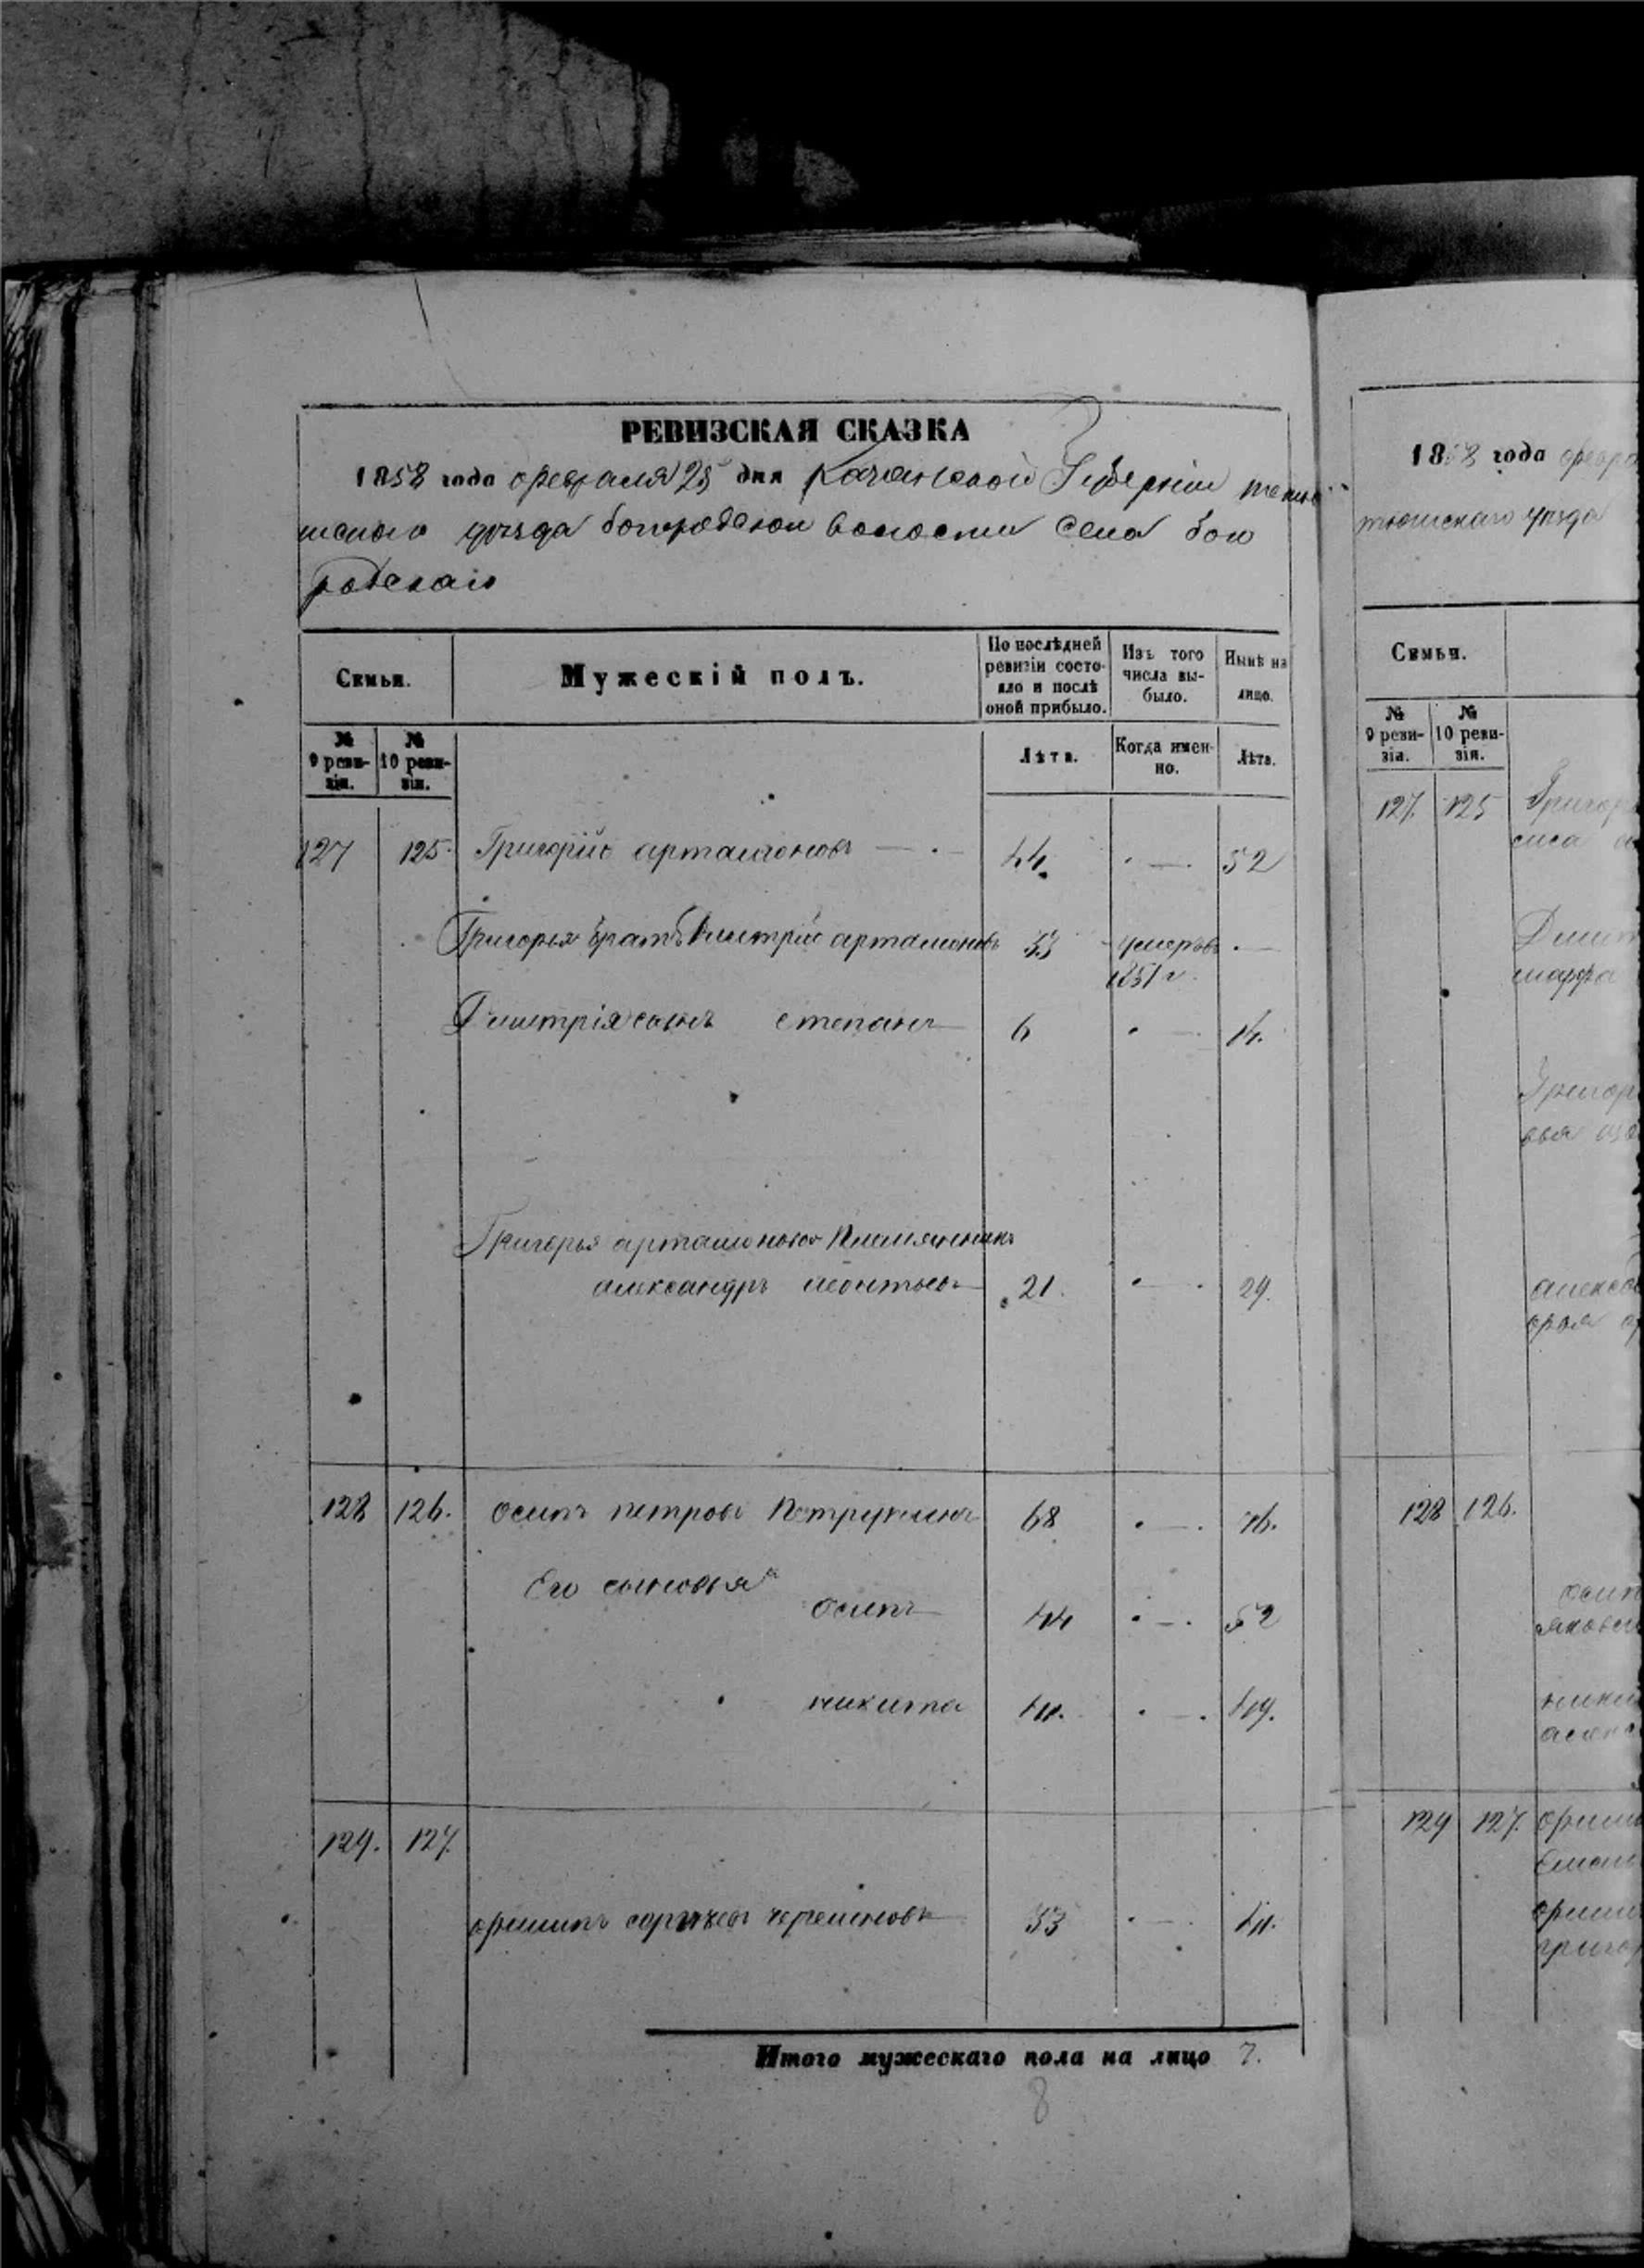 РЕВИЗСКАЯ СКАЗКА
1858 года февраля 25 дня Казанской Губернии тетю
шскаго уѣзда богородской волости Села бого
родскаго
Семьи.
Мужескій полъ.
По послѣдней ревизіи состояло и послѣ оной прибыло.
Изъ того числа выбыло.
Нынѣ на лицо.
№ 9 ревизіи.
№ 10 ревизіи.
Лѣта.
Когда именно.
Лѣта.
127 125. Григорій артамоновъ 44. 52
Григорья братъ Дмитрій артамоновъ 33 умеръ въ
1851 г.
Дмитрія сынъ степанъ 6 14.
Григорья артамонова племянникъ
александръ леонтьевъ 21. 29.
128 126. осипъ петровъ Петрухинъ 68 76.
Его сыновья
осипъ 44 52
никита 41. 49.
129. 127.
филипъ 33 41.
Итого мужескаго пола на лицо 7.
8
1858 года февра
тюшскаго уѣзда
Семьи.
№ 9 ревизіи.
№ 10 ревизіи.
127. 125 Григор
Дмит
марфа
Григор
алекса
128 126.
осип
яковл
ники
129 127. филип
филип
григор